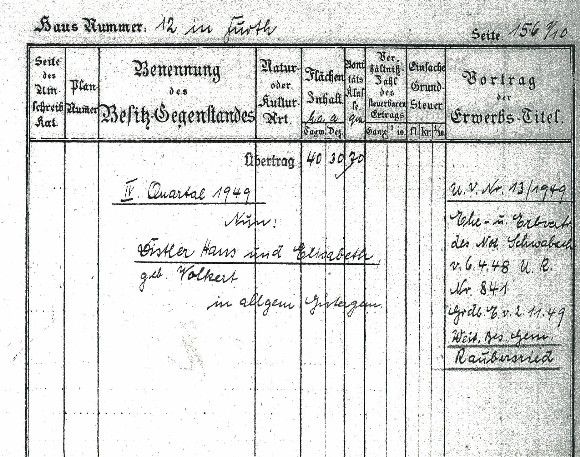 Haus Nummer: 12 in Furth
Seite 156 9/10
Seite des Umschreib Kat.
Plan Numer
Benennung des Besitz-Gegenstandes
Natur- oder Kultur-Art.
Flächen Inhalt
ha. a
Tagw. Dez.
Boni täts Klas se
qm
Ver hältniß Zahl des steuerbaren Ertrags
Ganze 1/10.
Einfache Grund Steuer
fl. kr. 1/10
Vortrag der Erwerbs-Titel.
Übertrag 40 30 70
IV. Quartal 1949
Nun:
Distler Hans und Elisabeth
geb. Volkert
in allgem. Gütergem.
U. V. Nr. 13/1949
Ehe- u. Erbvertr.
des Not. Schwabach
v. 6.4.48 U. R.
Nr. 841
Grdb. E. v. 2.11.49
Weit. Bes. Gem.
Raubersried